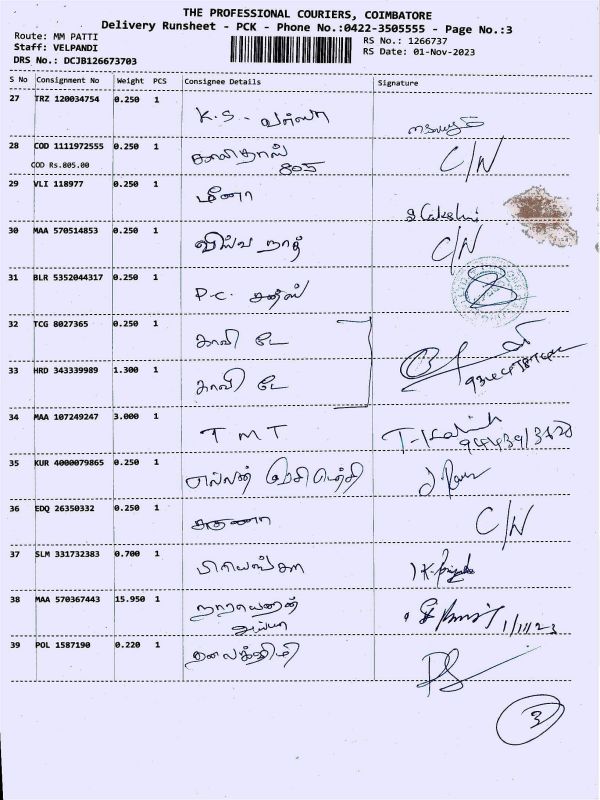 THE PROFESSIONAL COURIERS, COIMBATORE
Delivery Runsheet - PCK - Phone No.:0422-3505555 - Page No.:3
Route: MM PATTI
RS No.: 1266737
Staff: VELPANDI
RS Date: 01-Nov-2023
DRS No.: DCJB126673703
S No Consignment No Weight PCS Consignee Details Signature
27 TRZ 120034754 0.250 1 K.S.
28 COD 1111972555 0.250 1 காளிதாஸ் C/N
COD Rs.805.00 805
29 VLI 118977 0.250 1 மீனா
30 MAA 570514853 0.250 1 விஸ்வ நாத் C/N
31 BLR 5352044317 0.250 1 P.C.
32 TCG 8027365 0.250 1 காவி டே
33 HRD 343339989 1.300 1 காவி டே
34 MAA 107249247 3.000 1 T M T
35 KUR 4000079865 0.250 1 எல்லன்
36 EDQ 26350332 0.250 1 சுகுணா C/N
37 SLM 331732383 0.700 1 பிரியங்கா
38 MAA 570367443 15.950 1 நாராயணன் 1/11/23
அய்யா
39 POL 1587190 0.220 1 தனலக்ஷிமி
3